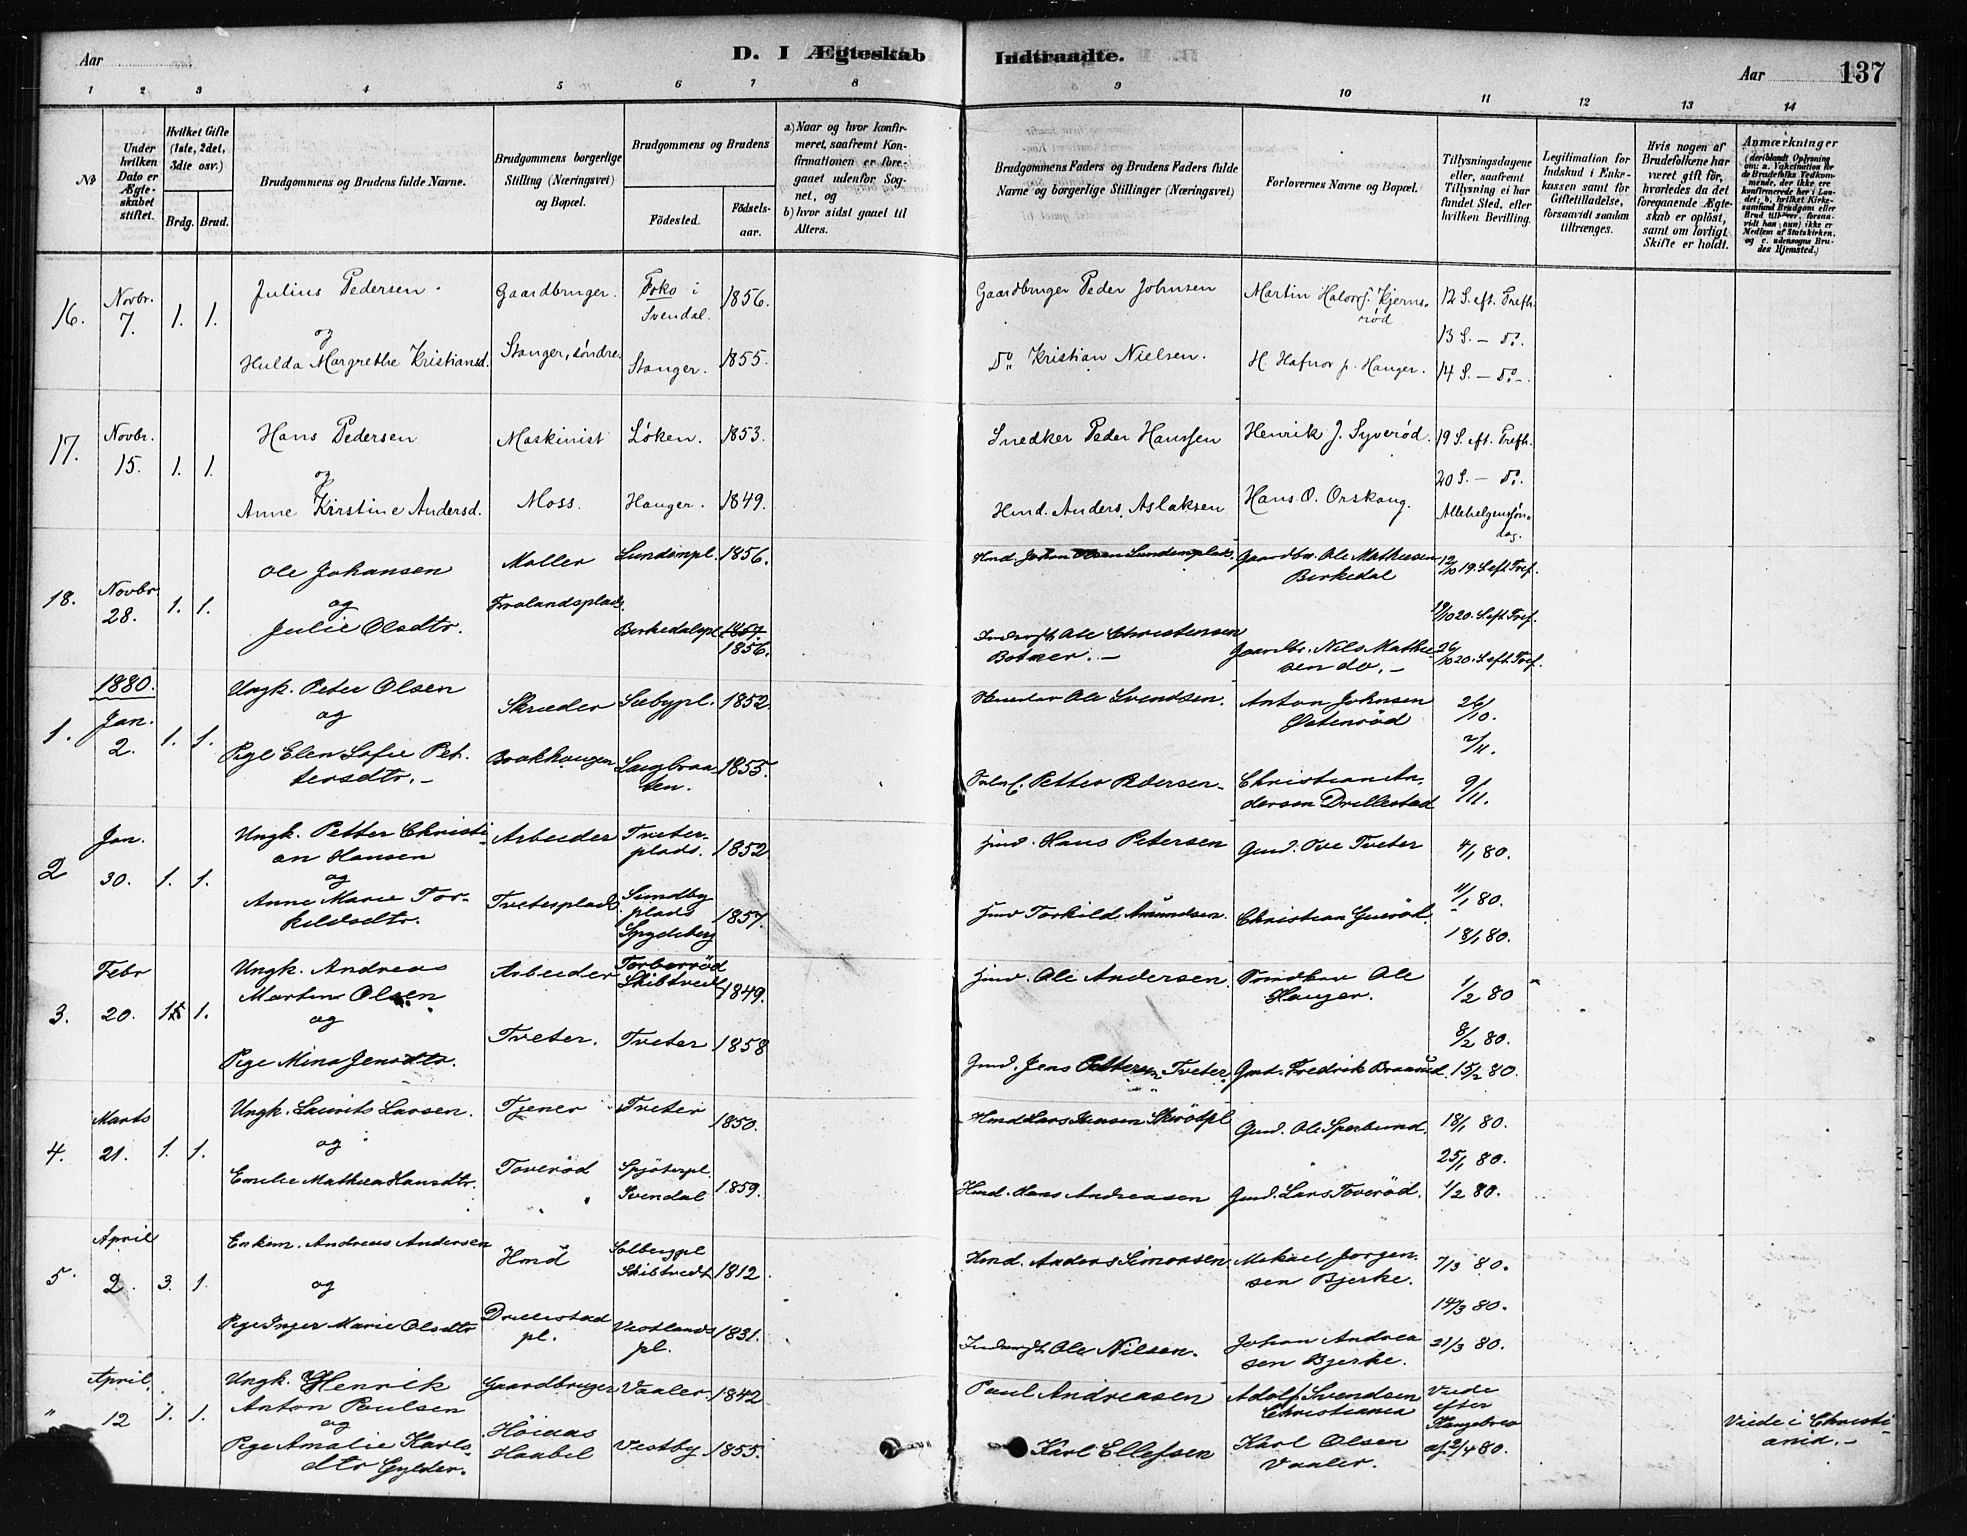 Aar
D. I Ægteskab
Indtraadte.
Aar
137
1 2 3 4 5 6 7 8
9 10 11 12 13 14
No
Under hvilken Dato er Ægteskabet stiftet.
Hvilket Gifte (1ste, 2det, 3die osv.)
Brdg. Brud.
Brudgommens og Brudens fulde Navne.
Brudgommens borgerlige Stilling (Næringsvei) og Bopæl.
Brudgommens og Brudens
Fødested.
Fødsels-aar.
a) Naar og hvor konfirmeret, saafremt Konfirmationen er foregaaet udenfor Sognet, og
b) hvor sidst gaaet til Alters.
Brudgommens Faders og Brudens Faders fulde Navne og borgerlige Stillinger (Næringsvei)
Forlovernes Navne og Bopæl.
Tillysningsdagene eller, saafremt Tillysning ei har fundet Sted, efter hvilken Bevilling.
Legitimation for Indskud i Enkekassen samt for Giftetilladelse, forsaavidt saadan tiltrænges.
Hvis nogen af Brudefolkene har været gift før, hvorledes da det foregaaende Ægteskab er opløst, samt om lovligt Skifte er holdt.
Anmærkninger
16. Novbr. 7. 1. 1.
Julius Pedersen
og
Hulda Margrethe Kristiansd.
Gaardbruger.
Stanger, søndre.
Foks i Svendal. 1856.
Stanger. 1855.
Gaardbruger Peder Johnsen
Do Kristian Nielsen.
Martin Halvorss. Kjernsrød
H. Hafnor p. Hauger.
12 S. eft. Trefh.
13 S. – Do.
14 S. – Do.
17. Novbr. 15. 1. 1.
Hans Pedersen
og
Anne Kirstine Andersd.
Maskinist
Moss.
Løken. 1853.
Hauger. 1849.
Snedker Peder Hanssen
Hmd. Anders Aslaksen
Henrik J. Syverød.
Hans O. Orskaug.
19 S. eft. Trefh.
20 S. – Do.
Allehelgensøndag.
18. Novbr 28. 1. 1.
Ole Johansen
og
Julie Olsdtr.
Møller
Frolandsplads.
Lundempl. 1856.
Birkedalspl 1857.
1856.
Hmd. Johan Lundemplads.
Ole Christensen
Botner. –
Gaardbr. Ole Mathiesen
Birkedal
Gaardbr. Nils Mathiesen do. –
12/10 19. S. eft Tref.
19/10 20. S. eft Tref.
26/10 20. S. eft Tref.
1880.
1. Jan. 2. 1. 1.
Ungk. Peter Olsen
og
Pige Elen Sofie Pettersdtr. –
Skræder
Brakhaugen
Sæbypl. 1852
Langbraaten. 1855.
Ole Svendsen.
Petter Pedersen.
Anton Johnsen
Østenrød
Christian Andersen Drillestad
26/10.
2/11.
9/11.
2 Jan. 30. 1. 1.
Ungk. Petter Christian Hansen
og
Anne Marie Torkildsdtr.
Arbeider
Tveterplads
Tveterplads. 1852
Sundby plads Spydeberg 1857.
Hmd. Hans Petersen
Hmd Torkild Amundsen.
Gmd. Ove Tveter
Christian Guerød.
4/1 80.
11/1 80.
18/1 80.
3. Febr 20. 1. 1.
Ungk. Andreas
Martin Olsen
og
Pige Mina Jensdtr.
Arbeider
Tveter.
Torberrød
Skibtvedt 1849.
Tveter 1858
Hmd. Ole Andersen.
Gmd. Jens Pettersen Tveter.
Ole Hauger.
Gmd. Fredrik Braarud.
1/2 80
8/2 80.
15/2 80.
4. Marts 21. 1. 1.
Ungk. Laurits Larsen.
og
Emilie Mathea Hansdtr.
Tjener
Toverød
Tveter 1850.
Spjøterpl Svendal 1859.
Hmd Lars Skrödpl
Hmd. Hans Andreasen
Gmd. Ole Sperbund.
Gmd. Lars Toverød.
18/1 80.
25/1 80.
1/2 80.
5. April 2. 3. 1.
Enkem. Andreas Andersen
og
Pige Inger Marie Olsdtr
Hmd
Drillestad pl.
Solbergpl Skibtvedt 1812.
Vestlands pl. 1831.
Hmd. Anders Simonsen
Ole Nilsen.
Mikael Jørgensen Bjerke.
Johan Andreasen Bjerke.
7/3 80.
14/3 80.
21/3 80.
" April 12 1. 1.
Ungk. Henrik
Anton Poulsen
og
Pige Amalie Karlsdtr Gylder.
Gaardbruger
Høiaas
Haabøl
Vaaler. 1842
Vestby 1855.
Paul Andreasen
Karl Ellefsen
Adolf Svendsen
Christiania
Karl Olsen
Vaaler.
Viede
efter
Kongebrev
af 2/4 80.
Viede i Christiania. –